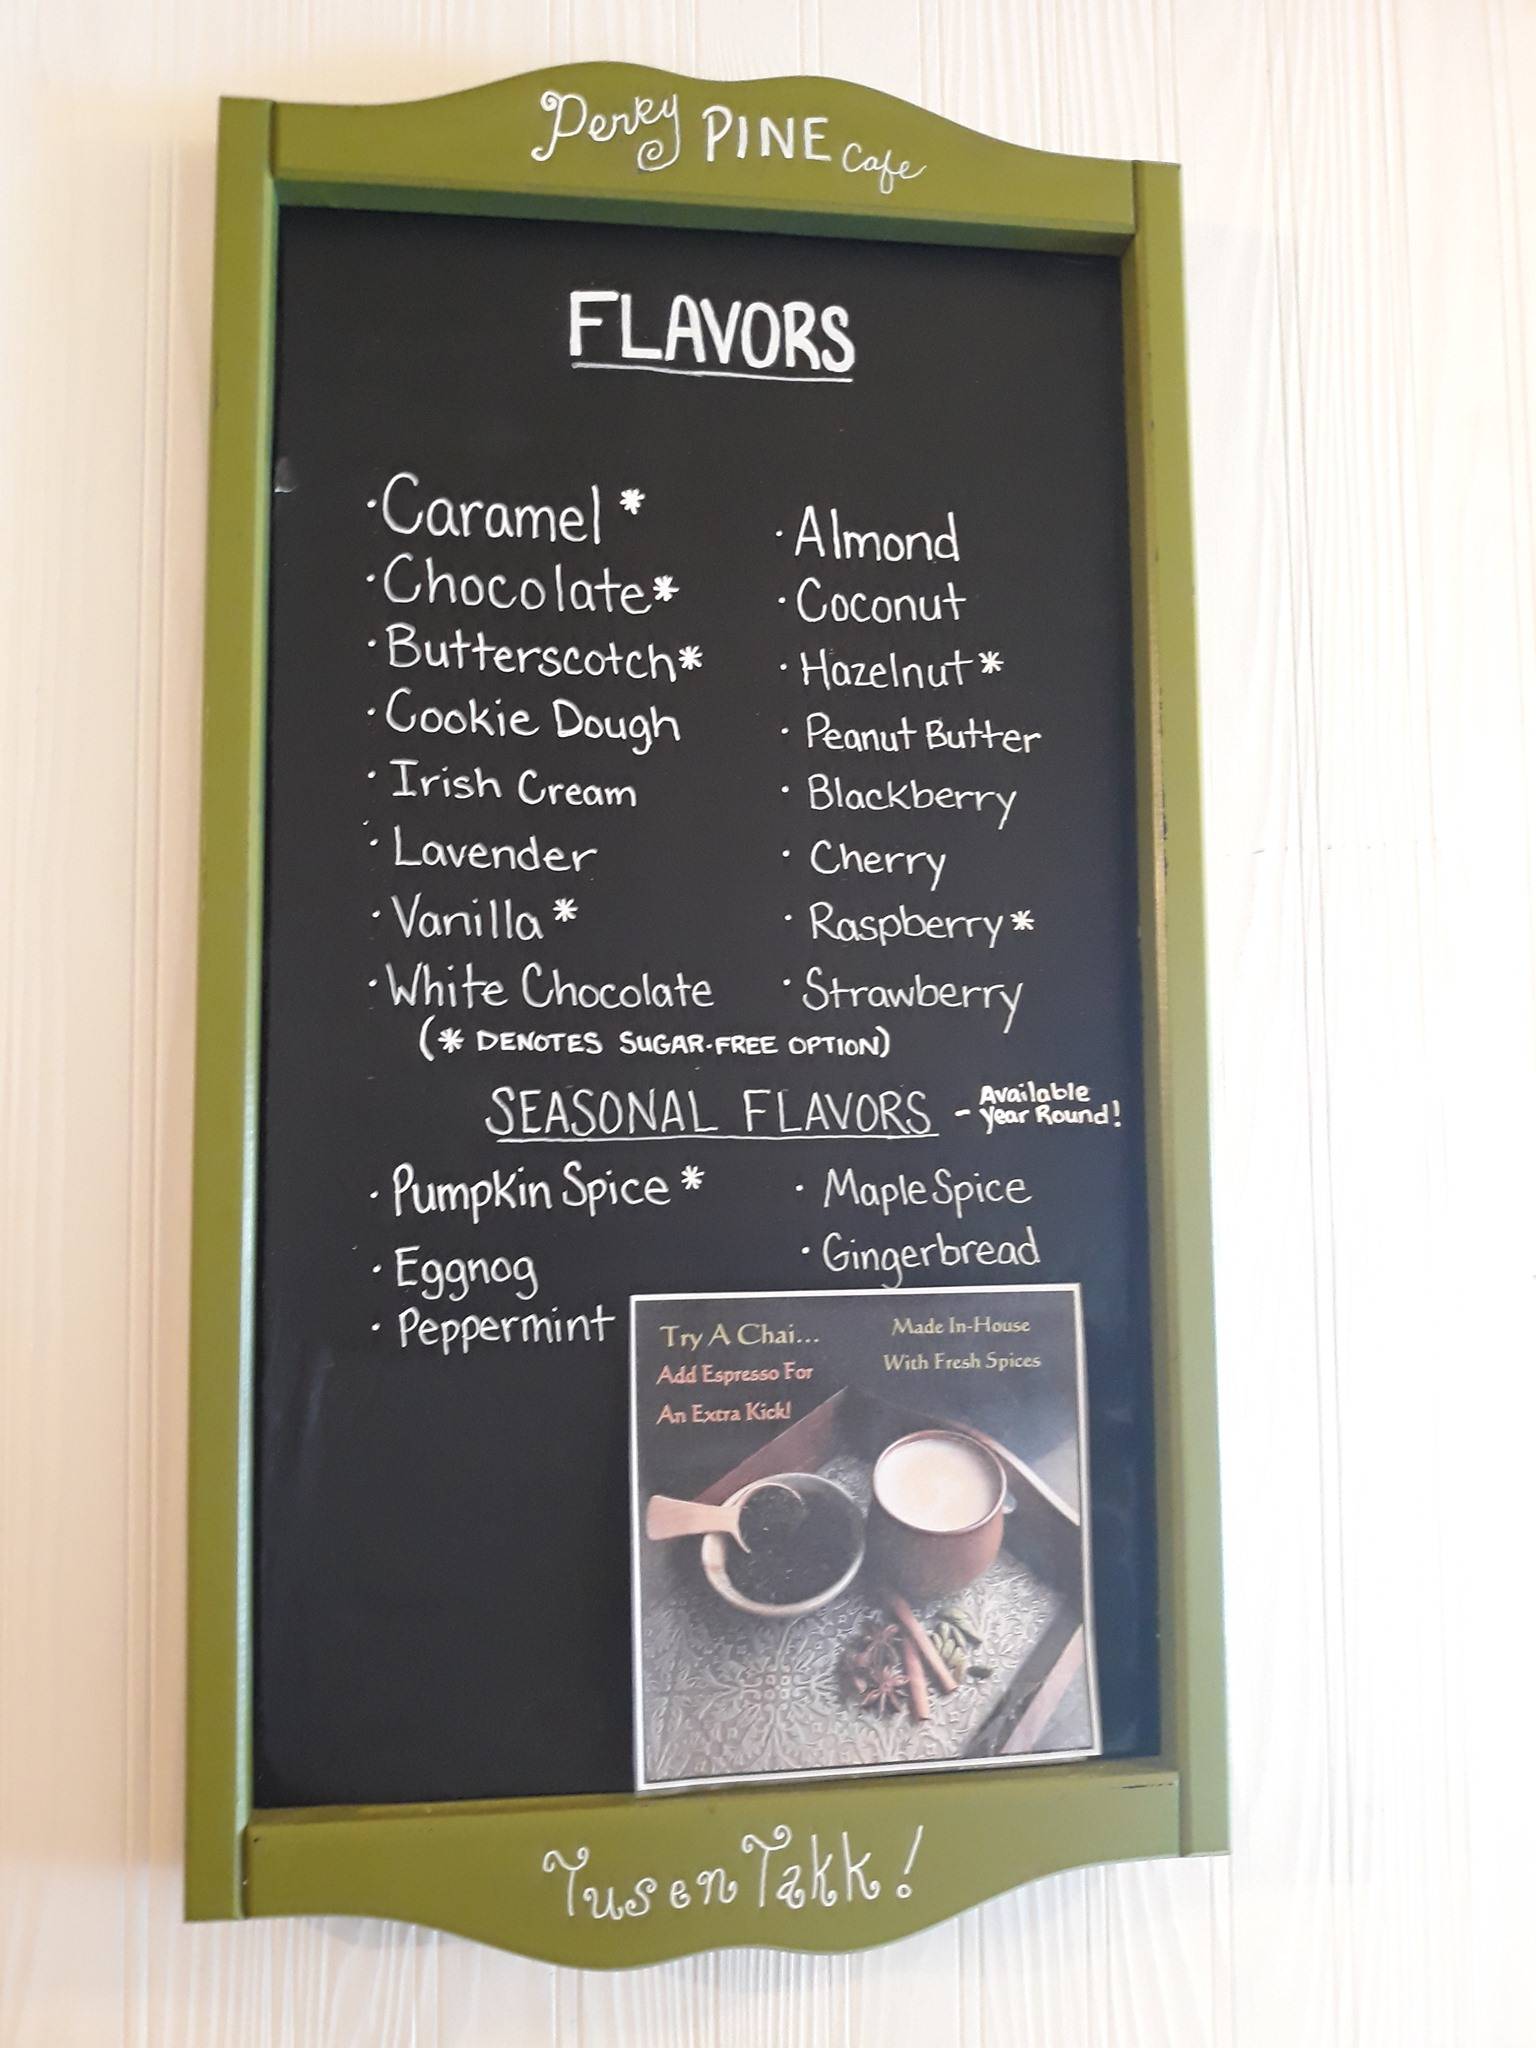 Perky PINE Cafe
FLAVORS
· Caramel *
· Chocolate *
· Butterscotch *
· Cookie Dough
· Irish Cream
· Lavender
· Vanilla *
· White Chocolate
· Almond
· Coconut
· Hazelnut *
· Peanut Butter
· Blackberry
· Cherry
· Raspberry *
· Strawberry
(* DENOTES SUGAR-FREE OPTION)
SEASONAL FLAVORS - Available
Year Round!
· Pumpkin Spice *
· Eggnog
· Peppermint
· Maple Spice
· Gingerbread
Try A Chai...
Add Espresso For
An Extra Kick!
Made In-House
With Fresh Spices
Tusen Takk!